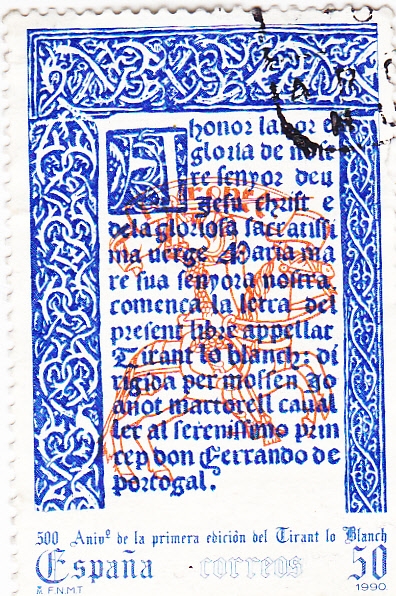 A honor lahor e
gloria de nostre
re senyor deu
Jesu christ e
dela gloriosa sacratissi
ma verge Maria ma
re sua senyora nostra.
comença la letra del
present libre appellat
Tirant lo blanch: di
rigida per mossen Jo
anot martorell caval
ler al serenissimo prin
cep don Ferrando de
portogal.
500 Anivº de la primera edición del Tirant lo Blanch
España correos 50
F.N.M.T 1990